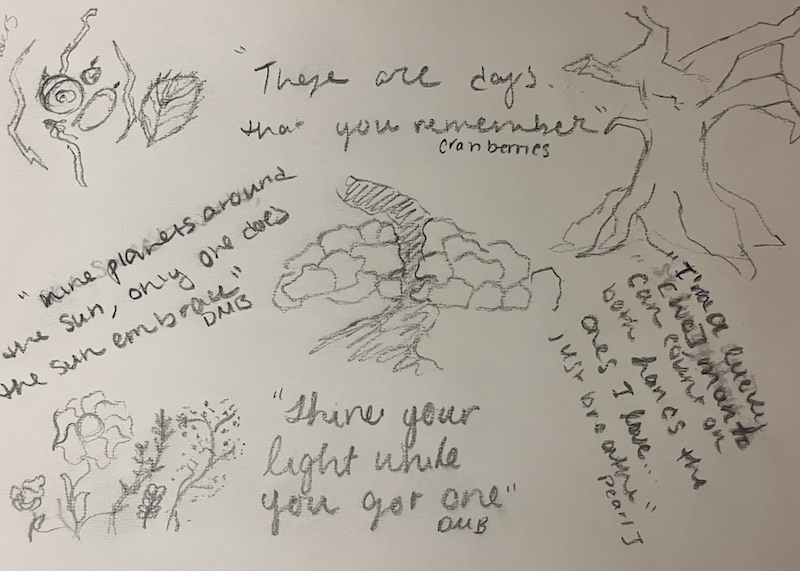 "These are days..
that you remember"
Cranberries
"nine planets around
the sun, only one does
the sun embrace"
DMB
"Shine your
light while
you got one"
DMB
"I'm a lucky
man to
"can count on
both hands the
ones I love...
just breathe"
Pearl J